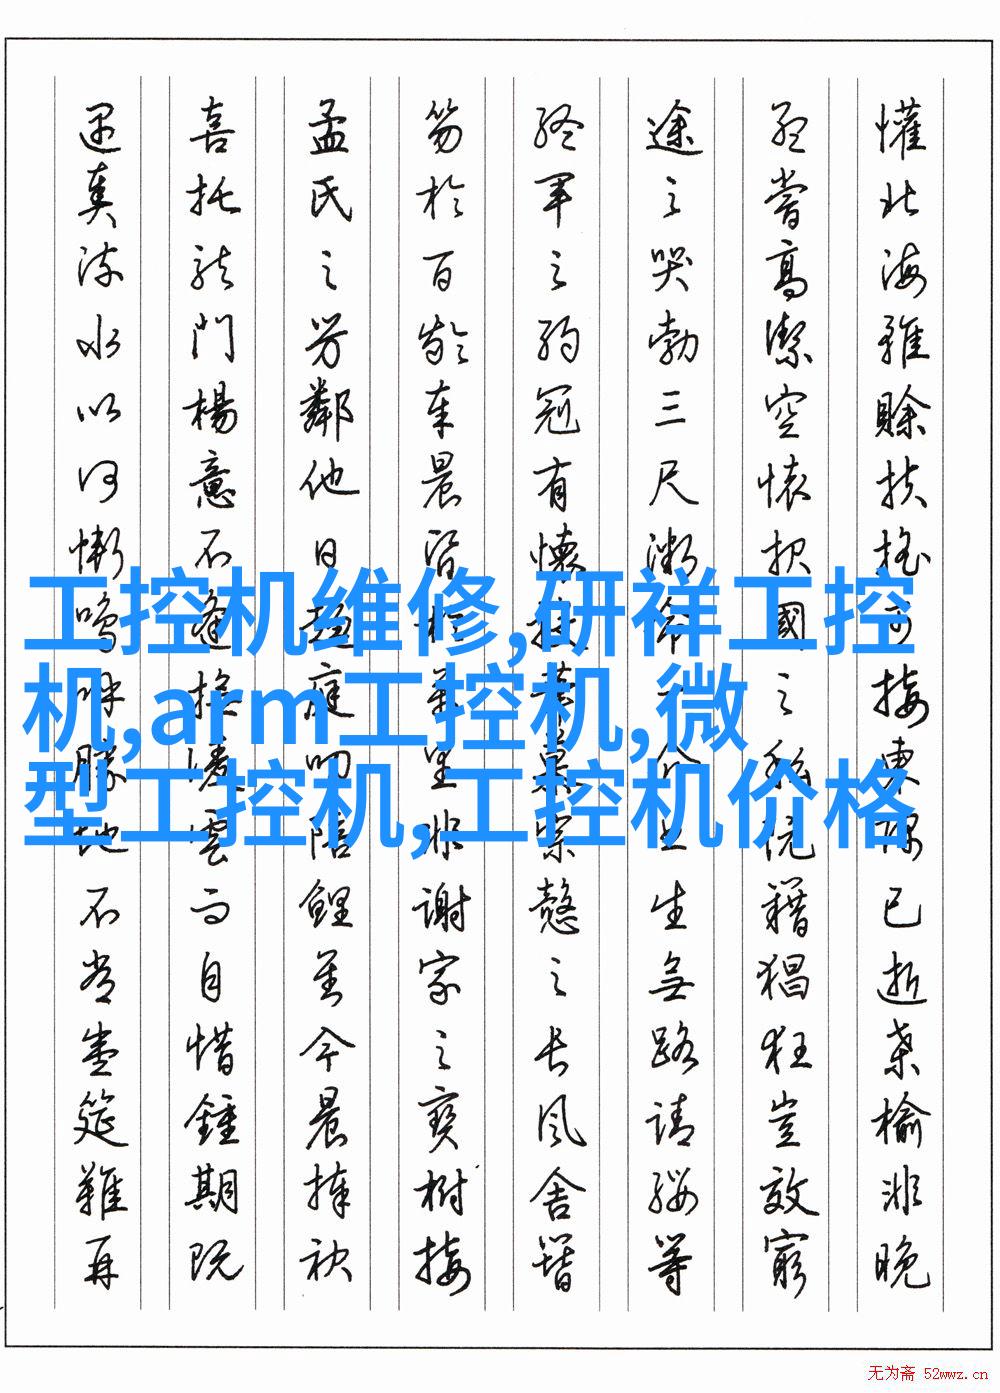 懽北海雖賒扶搖可接東隅已逝桑榆非晚
孟嘗高潔空懷报國之阮籍猖狂豈效窮
途之哭勃三尺微命一介书生無路請纓等
終軍之弱冠有懷投筆慕宗愨之長風舍簪
笏於百齡奉晨昏於萬里非謝家之寶樹接
孟氏之芳鄰他日趨庭叨陪鯉對今晨捧袂
喜托龍門楊意不逢撫凌雲而自惜鍾期既
遇奏流水以何慚嗚呼勝地不常盛筵難再
工控机维修,研祥工控
机,arm工控机,微
型工控机,工控机价格
无为斋 52wwz.cn